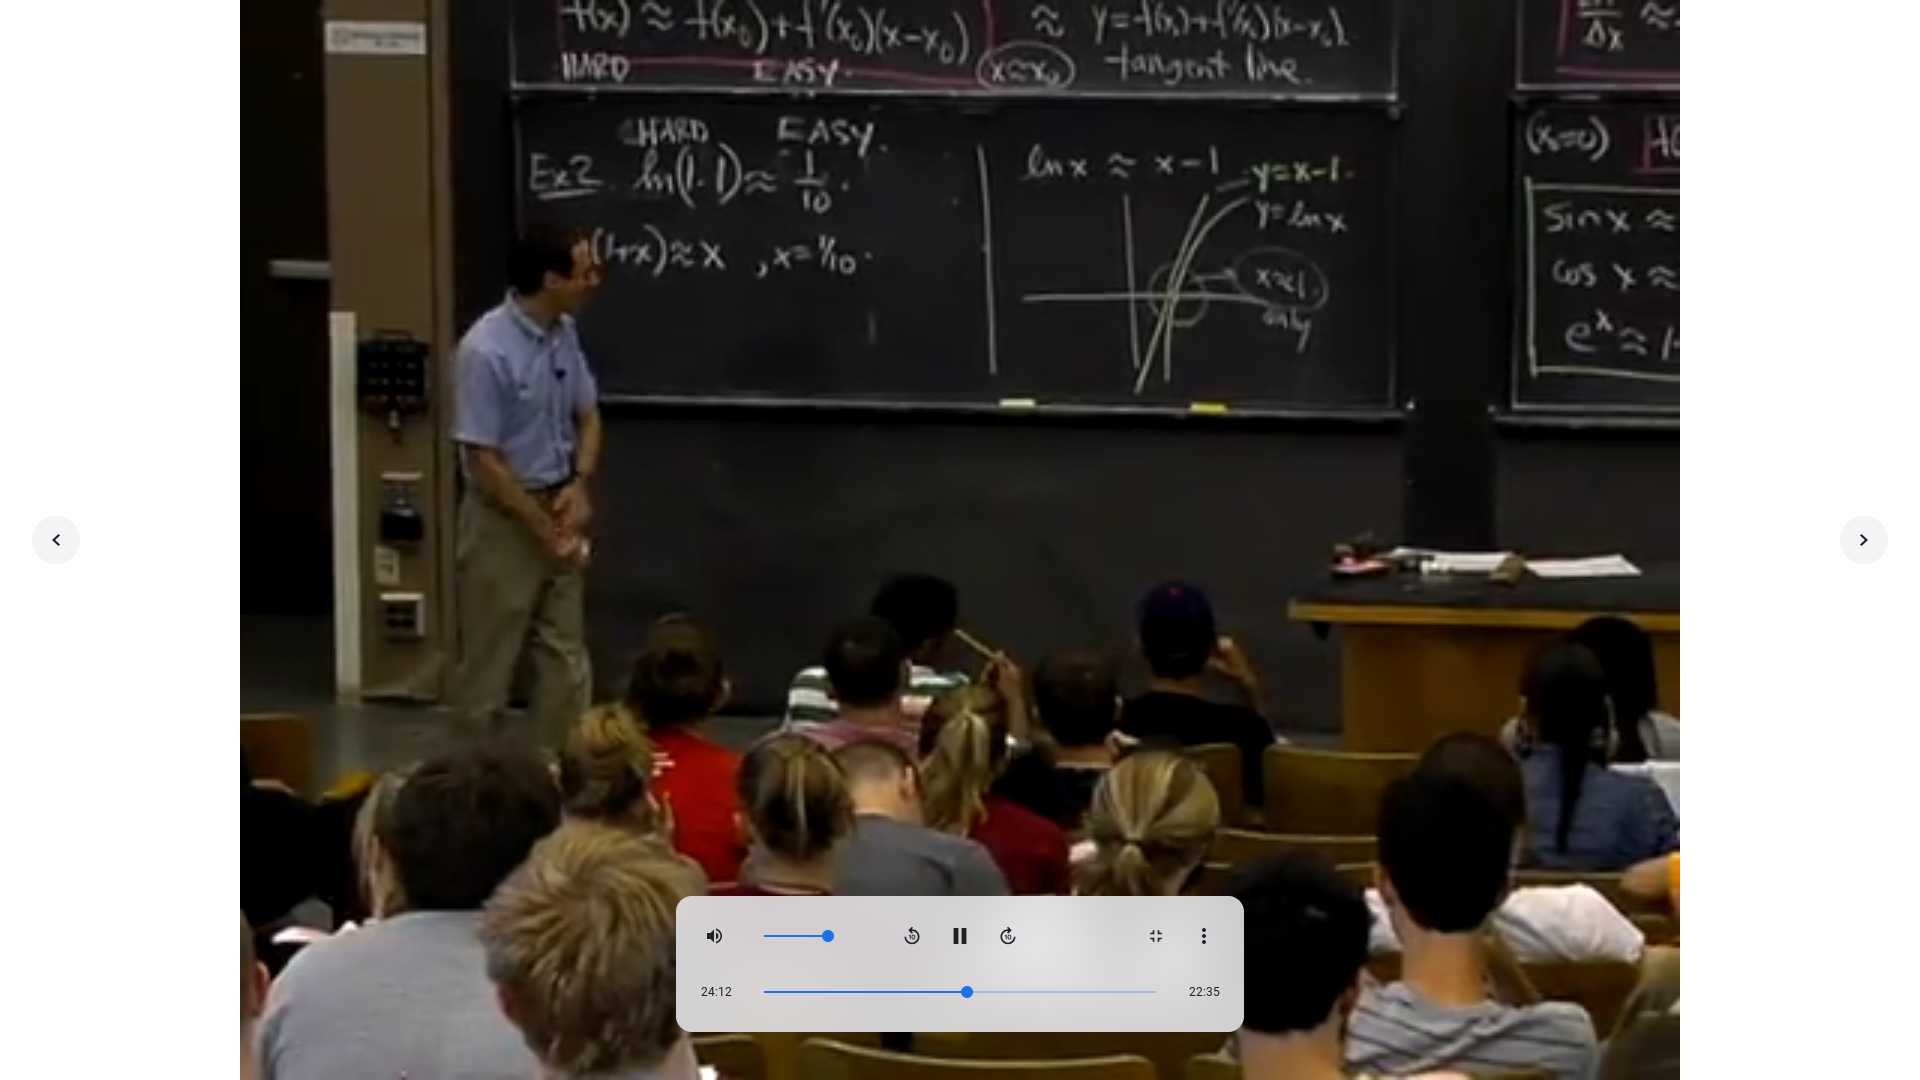 f(x) ≈ f(x₀)+f'(x₀)(x-x₀) ≈ y=f(x₀)+f'(x₀)(x-x₀)
HARD EASY x≈x₀ tangent line.
Δx ≈
HARD EASY.
Ex2 ln(1.1)≈ 1/10.
(1+x)≈x , x=1/10.
ln x ≈ x-1
y=x-1.
y=ln x
x≈1.
only
(x₀=0)
sin x ≈
cos x ≈
eˣ ≈ 1
10
10
24:12
22:35